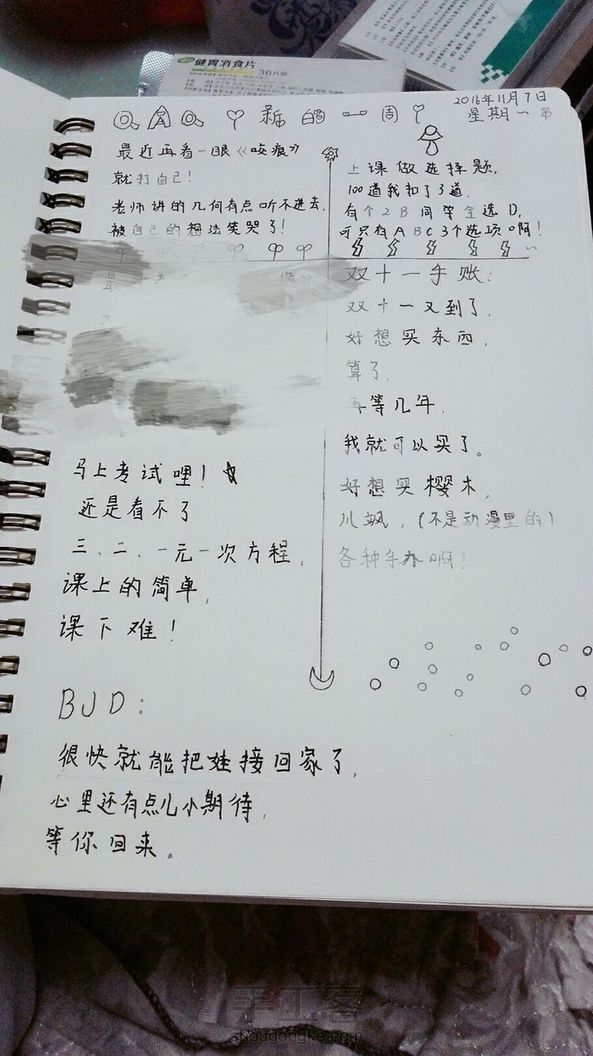 健胃消食片
36片装
2016年11月7日
QAQ 新的一周
星期一
最近再看一眼《咬痕》
就打自己!
老师讲的几何有点听不进去,
被自己的想法笑哭了!
上课做选择题,
100道我扣了3道,
有个2B同学全选D,
可只有ABC3个选项啊!
双十一手账:
双十一又到了,
好想买东西,
算了,
再等几年,
我就可以买了。
好想买樱木,
川飒,(不是动漫里的)
各种手办啊!
马上考试哩!
还是看不了
三、二、一元一次方程,
课上的简单,
课下难!
BJD:
很快就能把娃接回家了,
心里还有点儿小期待,
等你回来。
手工客
shougongke.com